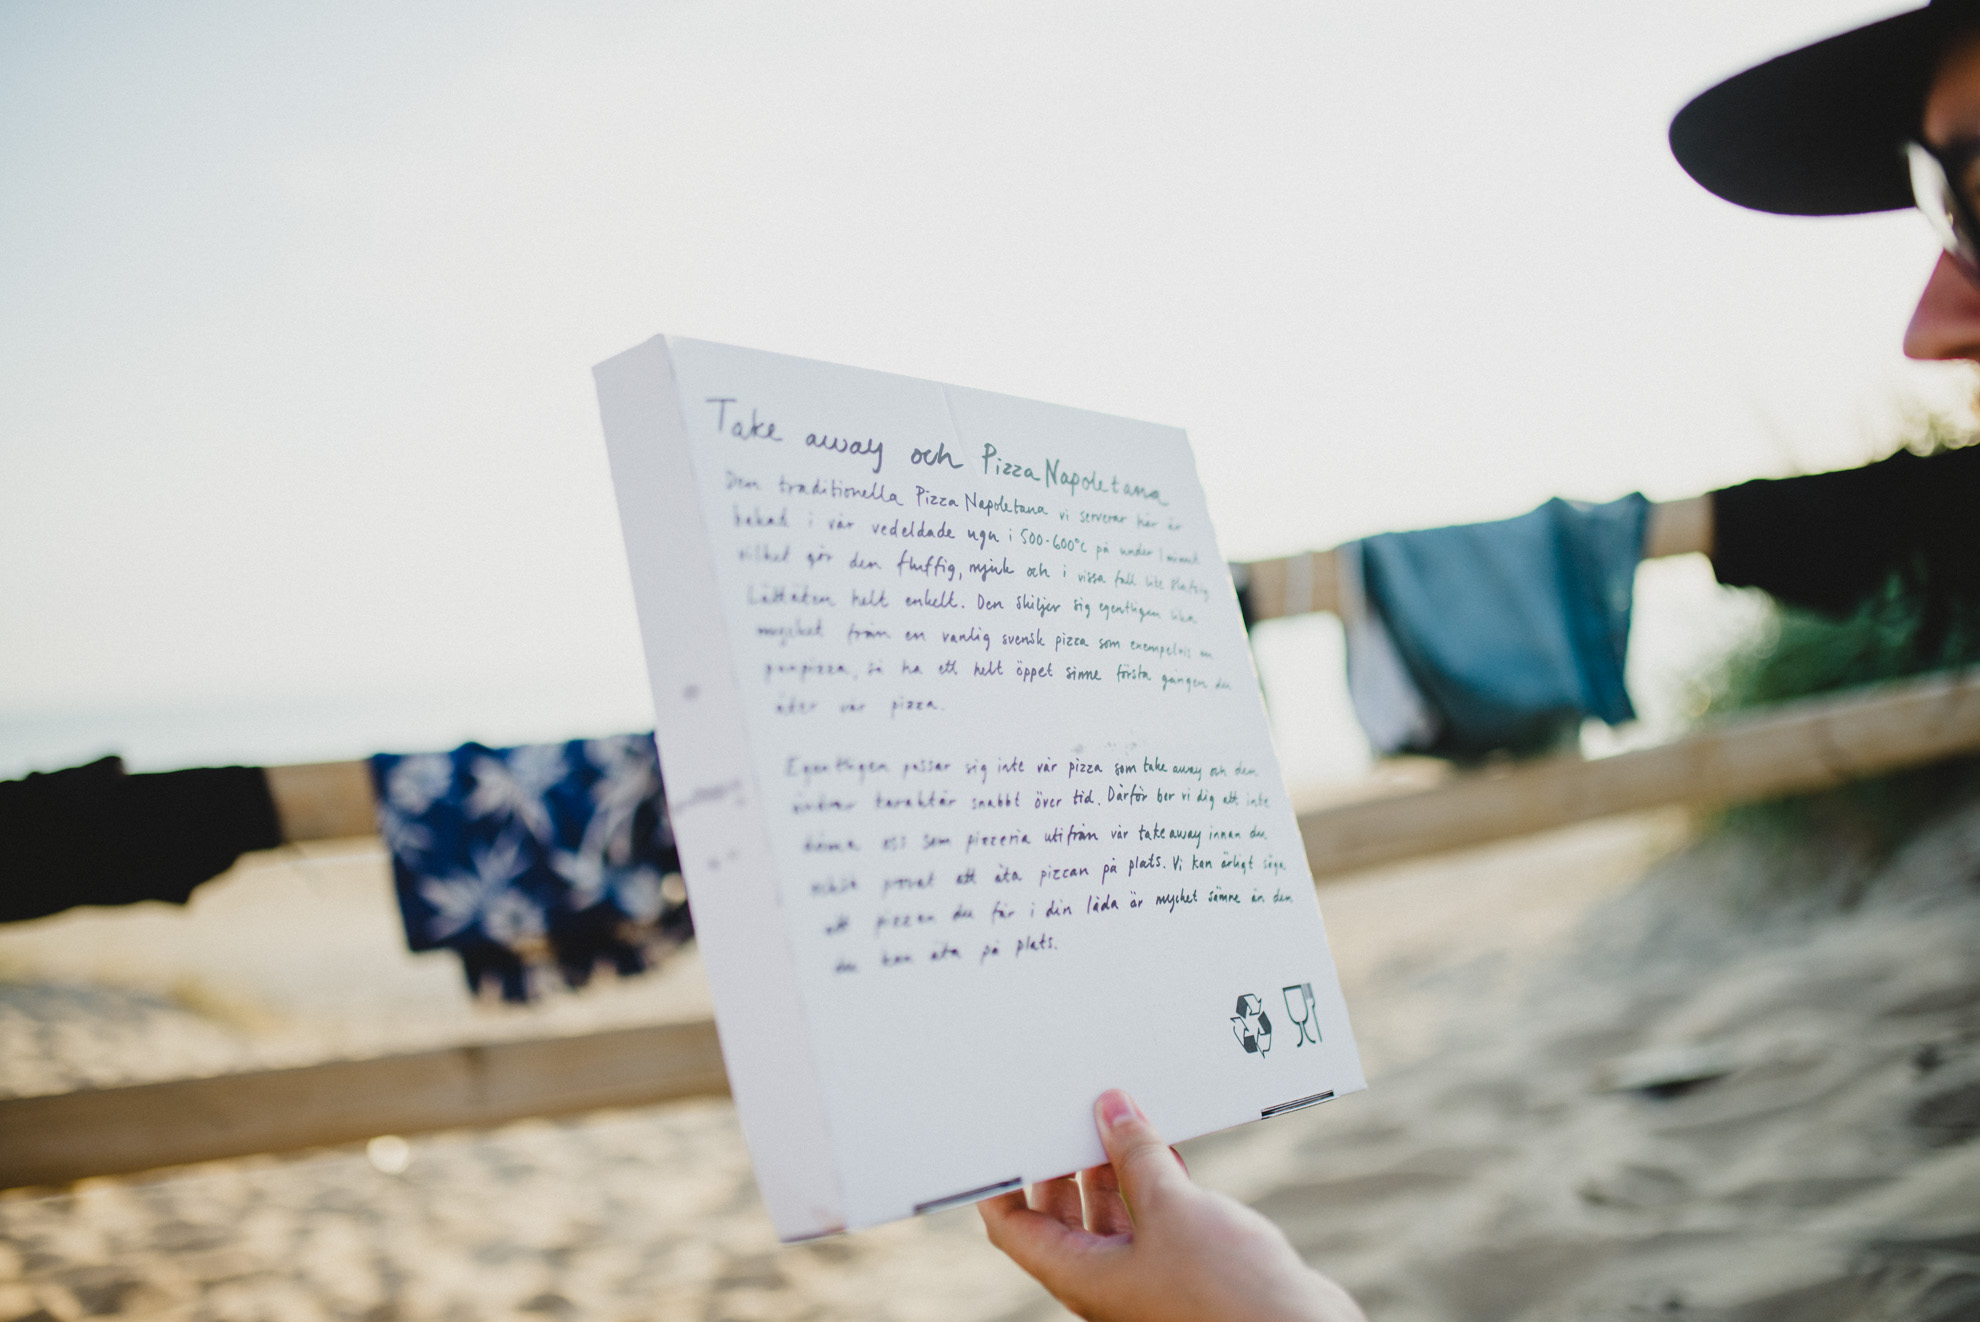 Take away och Pizza Napoletana
Den traditionella Pizza Napoletana vi serverar här är
bakad i vår vedeldade ugn i 500-600°c på under 1 minut
vilket gör den fluffig, mjuk och i vissa fall lite slafsig
Lättäten helt enkelt. Den skiljer sig egentligen lika
mycket från en vanlig svensk pizza som exempelvis en
panpizza, så ha ett helt öppet sinne första gången du
äter vår pizza.
Egentligen passar sig inte vår pizza som take away och den
ändrar karaktär snabbt över tid. Därför ber vi dig att inte
döma oss som pizzeria utifrån vår takeaway innan du
också provat att äta pizzan på plats. Vi kan ärligt säga
att pizzan du får i din låda är mycket sämre än den
du kan äta på plats.